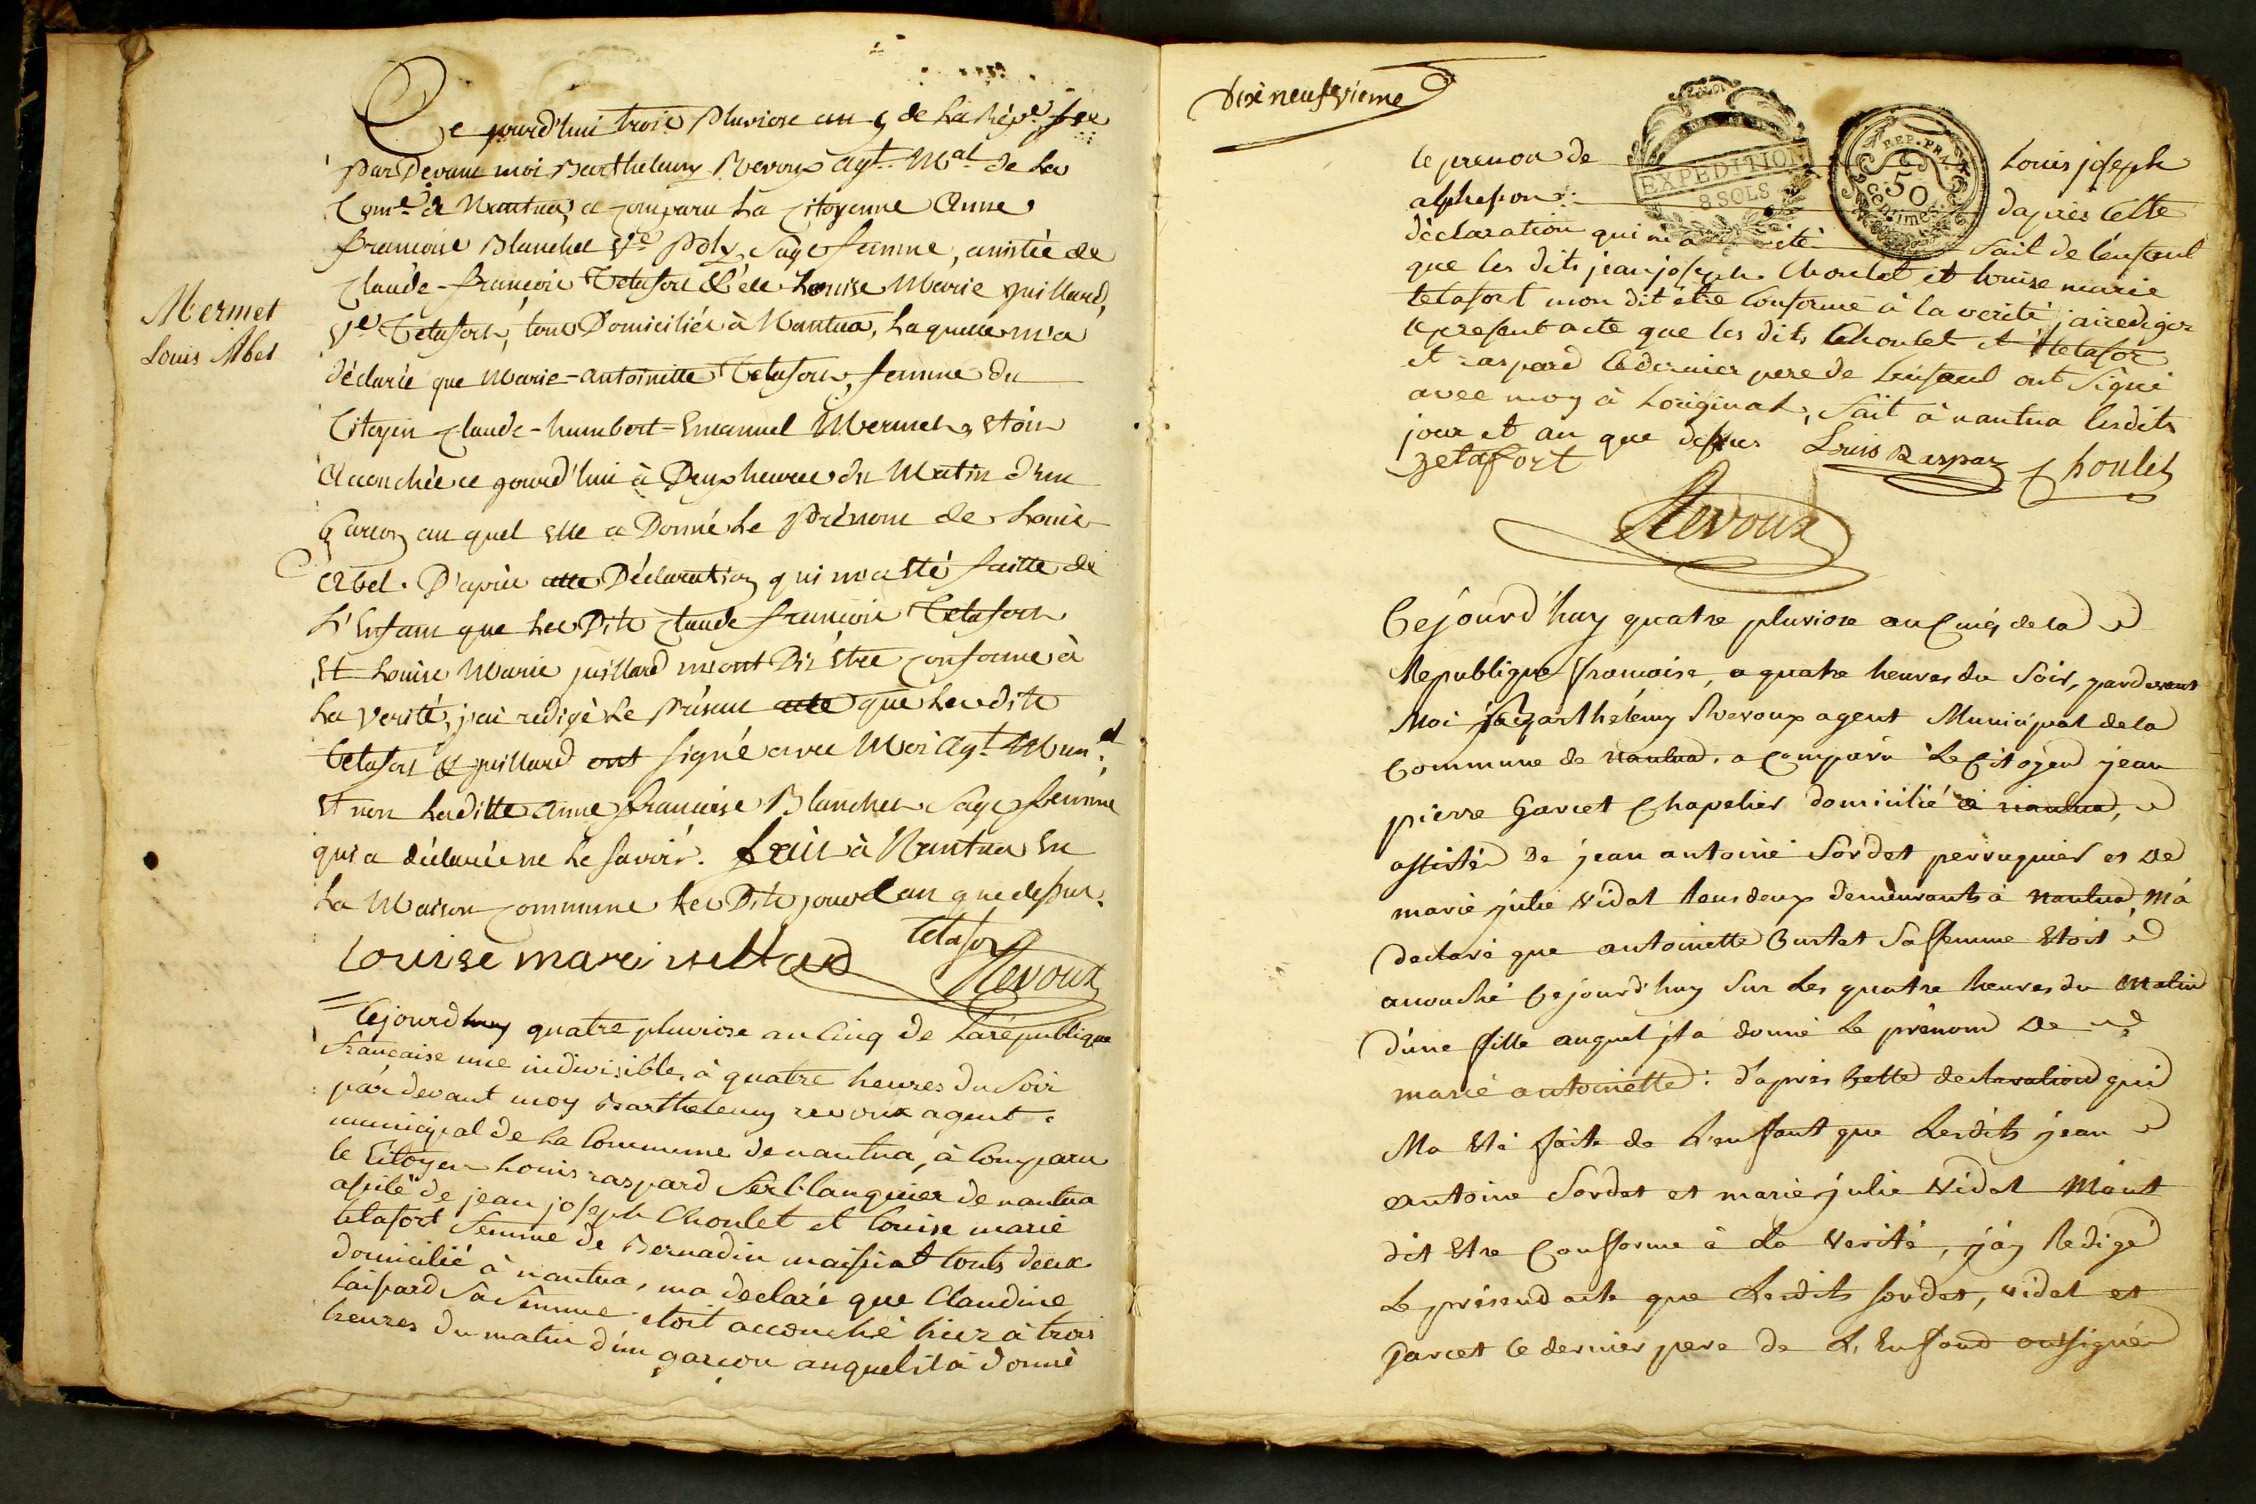 Ce jourd'hui trois Pluviose an 5 de La Rép.e fse
Par Devant moi Barthelemy Revoux agt. Mal de La
Com.e de Nantua, a Comparu La Citoyenne Anne
francoise Blanchet Ve Poly, Sage femme, assistée de
Claude-françois Tetafort & de Louise Marie Juillard,
Ve Tetafort, tous Domiciliés à Nantua, Laquelle m'a
Mermet
Louis Abel
déclarée que Marie-antoinette Tetafort, femme du
Citoyen Claude-humbert-Emanuel Mermet, Etoit
Accouchée ce jourd'hui à Deux heures du Matin d'un
Garçon au quel Elle a Donné Le Prénom de Louis
Abel. D'après cette Déclaration qui m'a Eté faitte de
L'Enfant que Les Dits Claude françois Tetafort
Et Louise Marie juillard m'ont Dit Etre Conforme à
La Verité, j'ai redigé Le Présent acte que Lesdits
Tetafort & juillard ont signé avec Moi Agt. Mun.al
Et non Laditte anne francoise Blanchet Sage femme
qui a déclarée ne Le savoir. fait à Nantua En
La Maison Commune Les Dits jour & an que dessus.
Louise mari Tetafor
Revoux
Cejourdhuy quatre pluviose an Cinq de La république
française une indivisible, à quatre heures du Soir
par devant moy Barthelemy revoux agent
municipal de La Commune de nantua, à Comparu
le Citoyen Louis raspard ferblanquier de nantua
assité de jean joseph Choulet et Louise marie
tetafort femme de Bernadin maissiat touts deux
domicilié à nantua, ma declaré que Claudine
Laissard Sa femme etoit accouché hier à trois
heures du matin d'un garçon auquel il à donné
Dix neufvieme
EXPEDITION
8 SOLS
REP. FRA.
50
Centimes
le prenom de Louis joseph
alphefon : daprès Cette
déclaration qui m'a été fait de l'enfant
que les dits jean joseph Choulet et Louise marie
tetafort mon dit être Conforme à la verité j'ai rediger
le present acte que les dits Choulet et tetafor
et raspard le dernier pere de L'enfant ont Signé
avec moy à Loriginal, fait à nantua lesdits
jour et an que dessus Louis Raspar Choulet
Zetafort
Revoux
Cejourd'huy quatre pluviose an Cinq de la
Republique francoise, a quatre heures du Soir, pardevant
Moi Barthélémy Revoux agent Municipal de la
Commune de nantua, a Comparu Le Citoyen jean
pierre Garcet Chapelier domicilié à nantua,
assisté De jean antoine Sordet perruquier et De
marie julie Vidal tous deux demeurants à nantua, M'a
declaré que antoinette Burtet Sa femme Etoit
acouché Cejourd'huy Sur Les quatre heures du Matin
d'une fille auquel jl a donné Le prénom De
marie antoinette : d'après Cette declaration qui
Ma Eté faite de L'enfant que Lesdits jean
antoine Sordet et marie julie Vidal M'ont
dit Etre Conforme à La Verité, j'ay Redigé
Le présend acte que Lesdits Sordet, vidal et
Garcet le dernier pere de L'Enfand ont signé